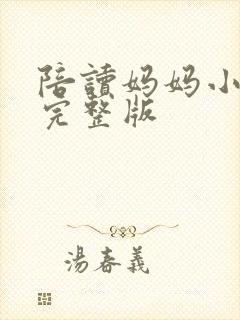 陪讀妈妈小
完整版
湯春義